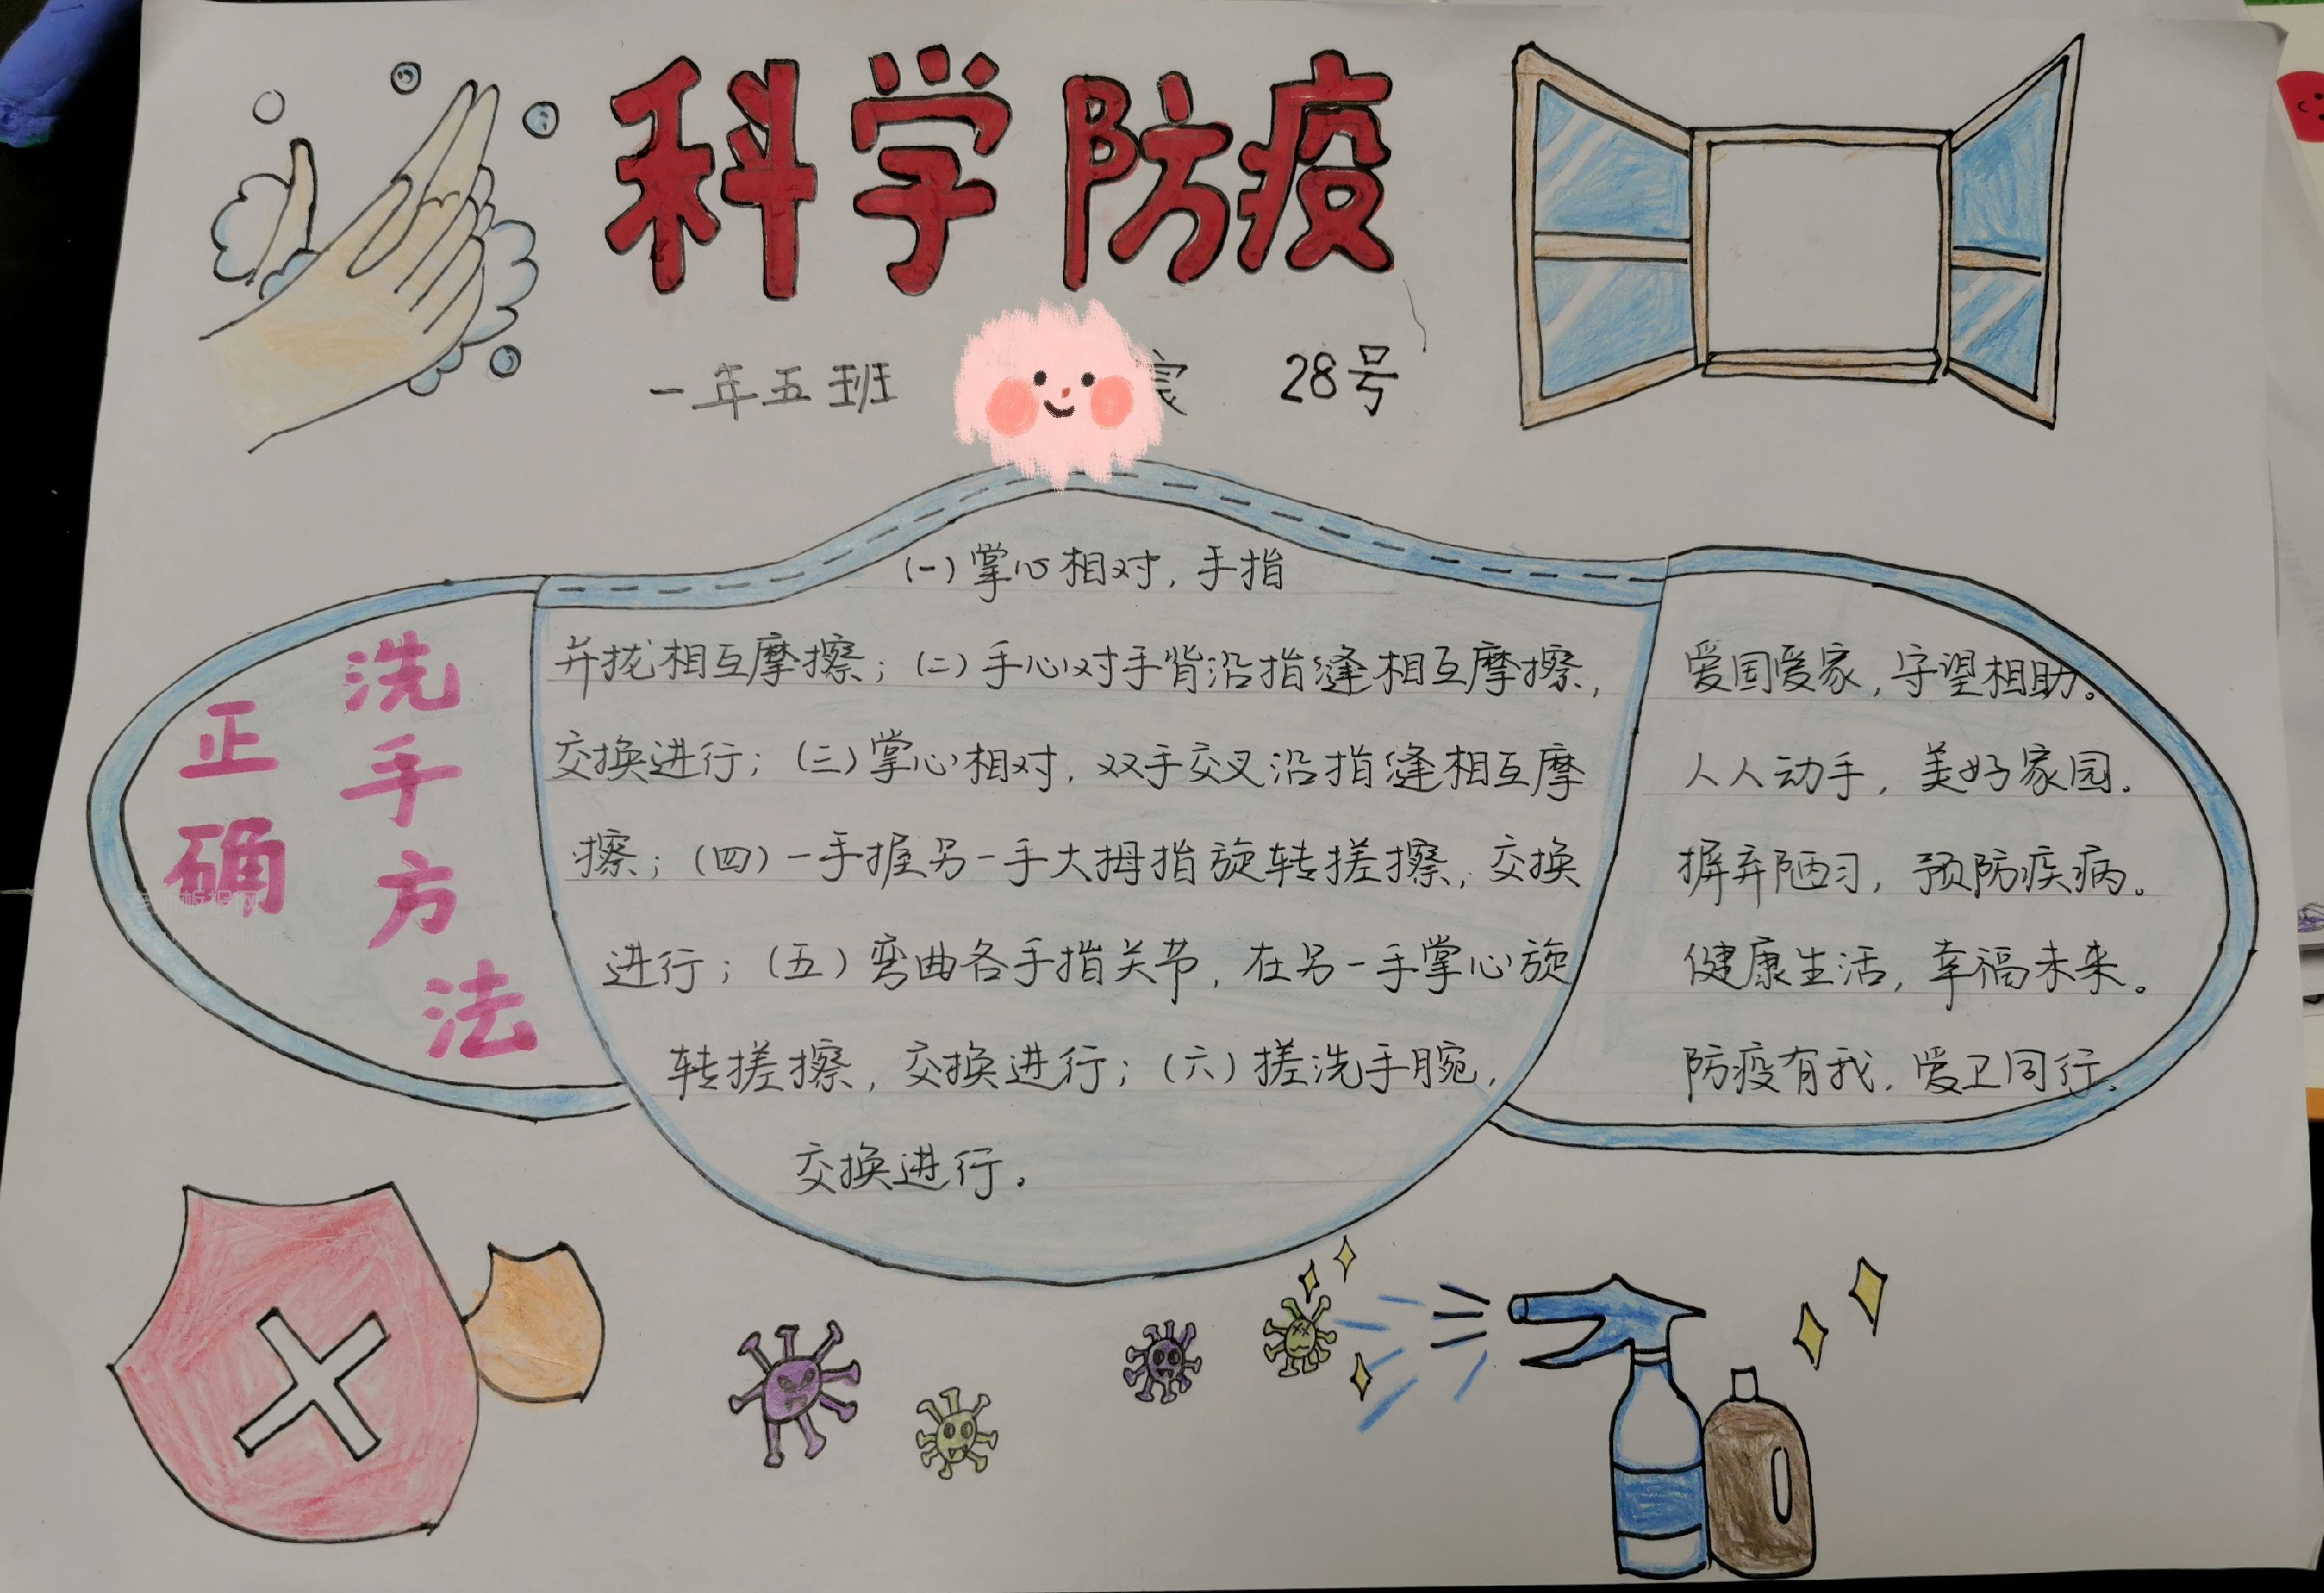 科学防疫
一年五班 28号
正确
洗手方法
(一)掌心相对,手指
并拢相互摩擦;(二)手心对手背沿指缝相互摩擦,
交换进行;(三)掌心相对,双手交叉沿指缝相互摩
擦;(四)一手握另一手大拇指旋转搓擦,交换
进行;(五)弯曲各手指关节,在另一手掌心旋
转搓擦,交换进行;(六)搓洗手腕,
交换进行.
爱国爱家,守望相助。
人人动手,美好家园.
摒弃陋习,预防疾病。
健康生活,幸福未来。
防疫有我,爱卫同行.